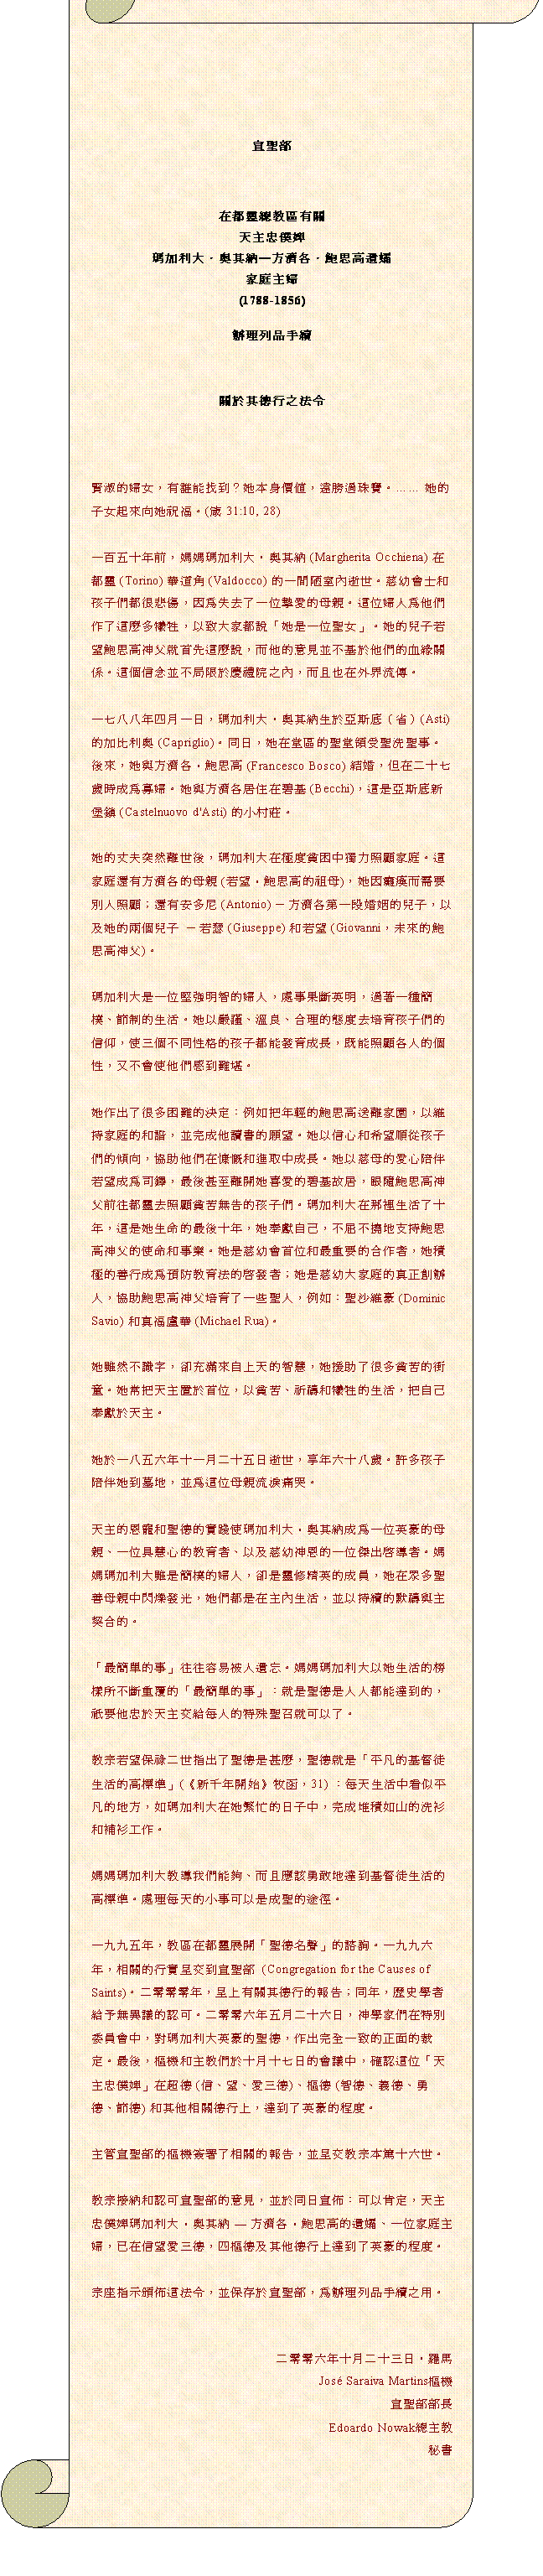 宣聖部
在都靈總教區有關
天主忠僕婢
瑪加利大‧奧其納—方濟各‧鮑思高遺孀
家庭主婦
(1788-1856)
辦理列品手續
關於其德行之法令
賢淑的婦女，有誰能找到？她本身價值，遠勝過珠寶。…… 她的
子女起來向她祝福。(箴 31:10, 28)
一百五十年前，媽媽瑪加利大‧奧其納 (Margherita Occhiena) 在
都靈 (Torino) 華道角 (Valdocco) 的一間陋室內逝世。慈幼會士和
孩子們都很悲傷，因為失去了一位摯愛的母親。這位婦人為他們
作了這麼多犧牲，以致大家都說「她是一位聖女」。她的兒子若
望鮑思高神父就首先這麼說，而他的意見並不基於他們的血緣關
係。這個信念並不局限於慶禮院之內，而且也在外界流傳。
一七八八年四月一日，瑪加利大‧奧其納生於亞斯底（省）(Asti)
的加比利奧 (Capriglio)。同日，她在堂區的聖堂領受聖洗聖事。
後來，她與方濟各‧鮑思高 (Francesco Bosco) 結婚，但在二十七
歲時成為寡婦。她與方濟各居住在碧基 (Becchi)，這是亞斯底新
堡鎮 (Castelnuovo d'Asti) 的小村莊。
她的丈夫突然離世後，瑪加利大在極度貧困中獨力照顧家庭。這
家庭還有方濟各的母親 (若望‧鮑思高的祖母)，她因癱瘓而需要
別人照顧；還有安多尼 (Antonio) － 方濟各第一段婚姻的兒子，以
及她的兩個兒子 － 若瑟 (Giuseppe) 和若望 (Giovanni，未來的鮑
思高神父)。
瑪加利大是一位堅強明智的婦人，處事果斷英明，過著一種簡
樸、節制的生活。她以嚴謹、溫良、合理的態度去培育孩子們的
信仰，使三個不同性格的孩子都能發育成長，既能照顧各人的個
性，又不會使他們感到難堪。
她作出了很多困難的決定：例如把年輕的鮑思高送離家園，以維
持家庭的和諧，並完成他讀書的願望。她以信心和希望順從孩子
們的傾向，協助他們在慷慨和進取中成長。她以慈母的愛心陪伴
若望成為司鐸，最後甚至離開她喜愛的碧基故居，跟隨鮑思高神
父前往都靈去照顧貧苦無告的孩子們。瑪加利大在那裡生活了十
年，這是她生命的最後十年，她奉獻自己，不屈不撓地支持鮑思
高神父的使命和事業。她是慈幼會首位和最重要的合作者，她積
極的善行成為預防教育法的啓發者；她是慈幼大家庭的真正創辦
人，協助鮑思高神父培育了一些聖人，例如：聖沙維豪 (Dominic
Savio) 和真福盧華 (Michael Rua)。
她雖然不識字，卻充滿來自上天的智慧，她援助了很多貧苦的街
童。她常把天主置於首位，以貧苦、祈禱和犧牲的生活，把自己
奉獻於天主。
她於一八五六年十一月二十五日逝世，享年六十八歲。許多孩子
陪伴她到墓地，並為這位母親流淚痛哭。
天主的恩寵和聖德的實踐使瑪加利大‧奧其納成為一位英豪的母
親、一位具慧心的教育者、以及慈幼神恩的一位傑出啓導者。媽
媽瑪加利大雖是簡樸的婦人，卻是靈修精英的成員，她在眾多聖
善母親中閃爍發光，她們都是在主內生活，並以持續的默禱與主
契合的。
「最簡單的事」往往容易被人遺忘。媽媽瑪加利大以她生活的榜
樣所不斷重覆的「最簡單的事」：就是聖德是人人都能達到的，
祇要他忠於天主交給每人的特殊聖召就可以了。
教宗若望保祿二世指出了聖德是甚麼，聖德就是「平凡的基督徒
生活的高標準」(《新千年開始》牧函，31) ：每天生活中看似平
凡的地方，如瑪加利大在她繁忙的日子中，完成堆積如山的洗衫
和補衫工作。
媽媽瑪加利大教導我們能夠、而且應該勇敢地達到基督徒生活的
高標準。處理每天的小事可以是成聖的途徑。
一九九五年，教區在都靈展開「聖德名聲」的諮詢。一九九六
年，相關的行實呈交到宣聖部 (Congregation for the Causes of
Saints)。二零零零年，呈上有關其德行的報告；同年，歷史學者
給予無異議的認可。二零零六年五月二十六日，神學家們在特別
委員會中，對瑪加利大英豪的聖德，作出完全一致的正面的裁
定。最後，樞機和主教們於十月十七日的會議中，確認這位「天
主忠僕婢」在超德 (信、望、愛三德)、樞德 (智德、義德、勇
德、節德) 和其他相關德行上，達到了英豪的程度。
主管宣聖部的樞機簽署了相關的報告，並呈交教宗本篤十六世。
教宗接納和認可宣聖部的意見，並於同日宣佈：可以肯定，天主
忠僕婢瑪加利大‧奧其納 — 方濟各‧鮑思高的遺孀、一位家庭主
婦，已在信望愛三德，四樞德及其他德行上達到了英豪的程度。
宗座指示頒佈這法令，並保存於宣聖部，為辦理列品手續之用。
二零零六年十月二十三日‧羅馬
José Saraiva Martins樞機
宣聖部部長
Edoardo Nowak總主教
秘書